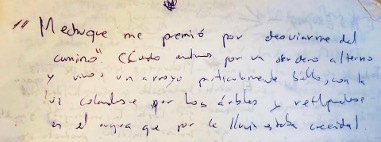 "Mechuque me premió por desviarme del
camino". (Cuando anduve por un sendero alterno
y vimos un arroyo particularmente bello, con la
luz colandose por los árboles y reflejandose
en el agua que por la lluvia estaba crecida)